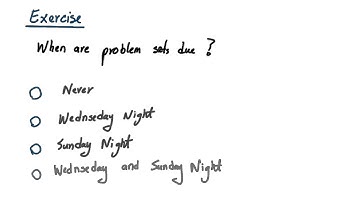 Exercise
When are problem sets due ?
Never
Wednseday Night
Sunday Night
Wednseday and Sunday Night